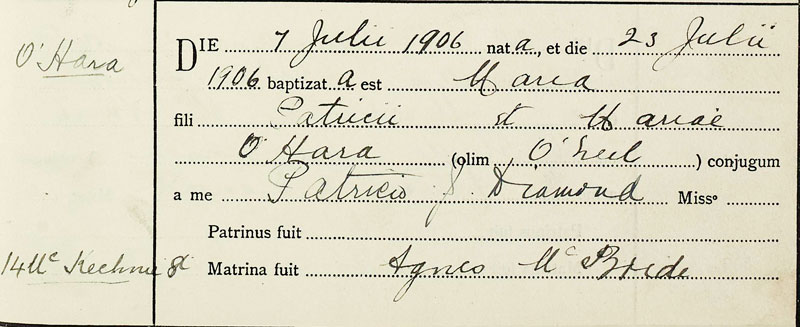 O'Hara
DIE 7 Julii 1906 nat a, et die 23 Julii
1906 baptizat a est Maria
fili Patricii et Mariae
O'Hara (olim O'Neil) conjugum
a me Patricio J. Diamond Misso
Patrinus fuit
14 McKechnie St Matrina fuit Agnes McBride